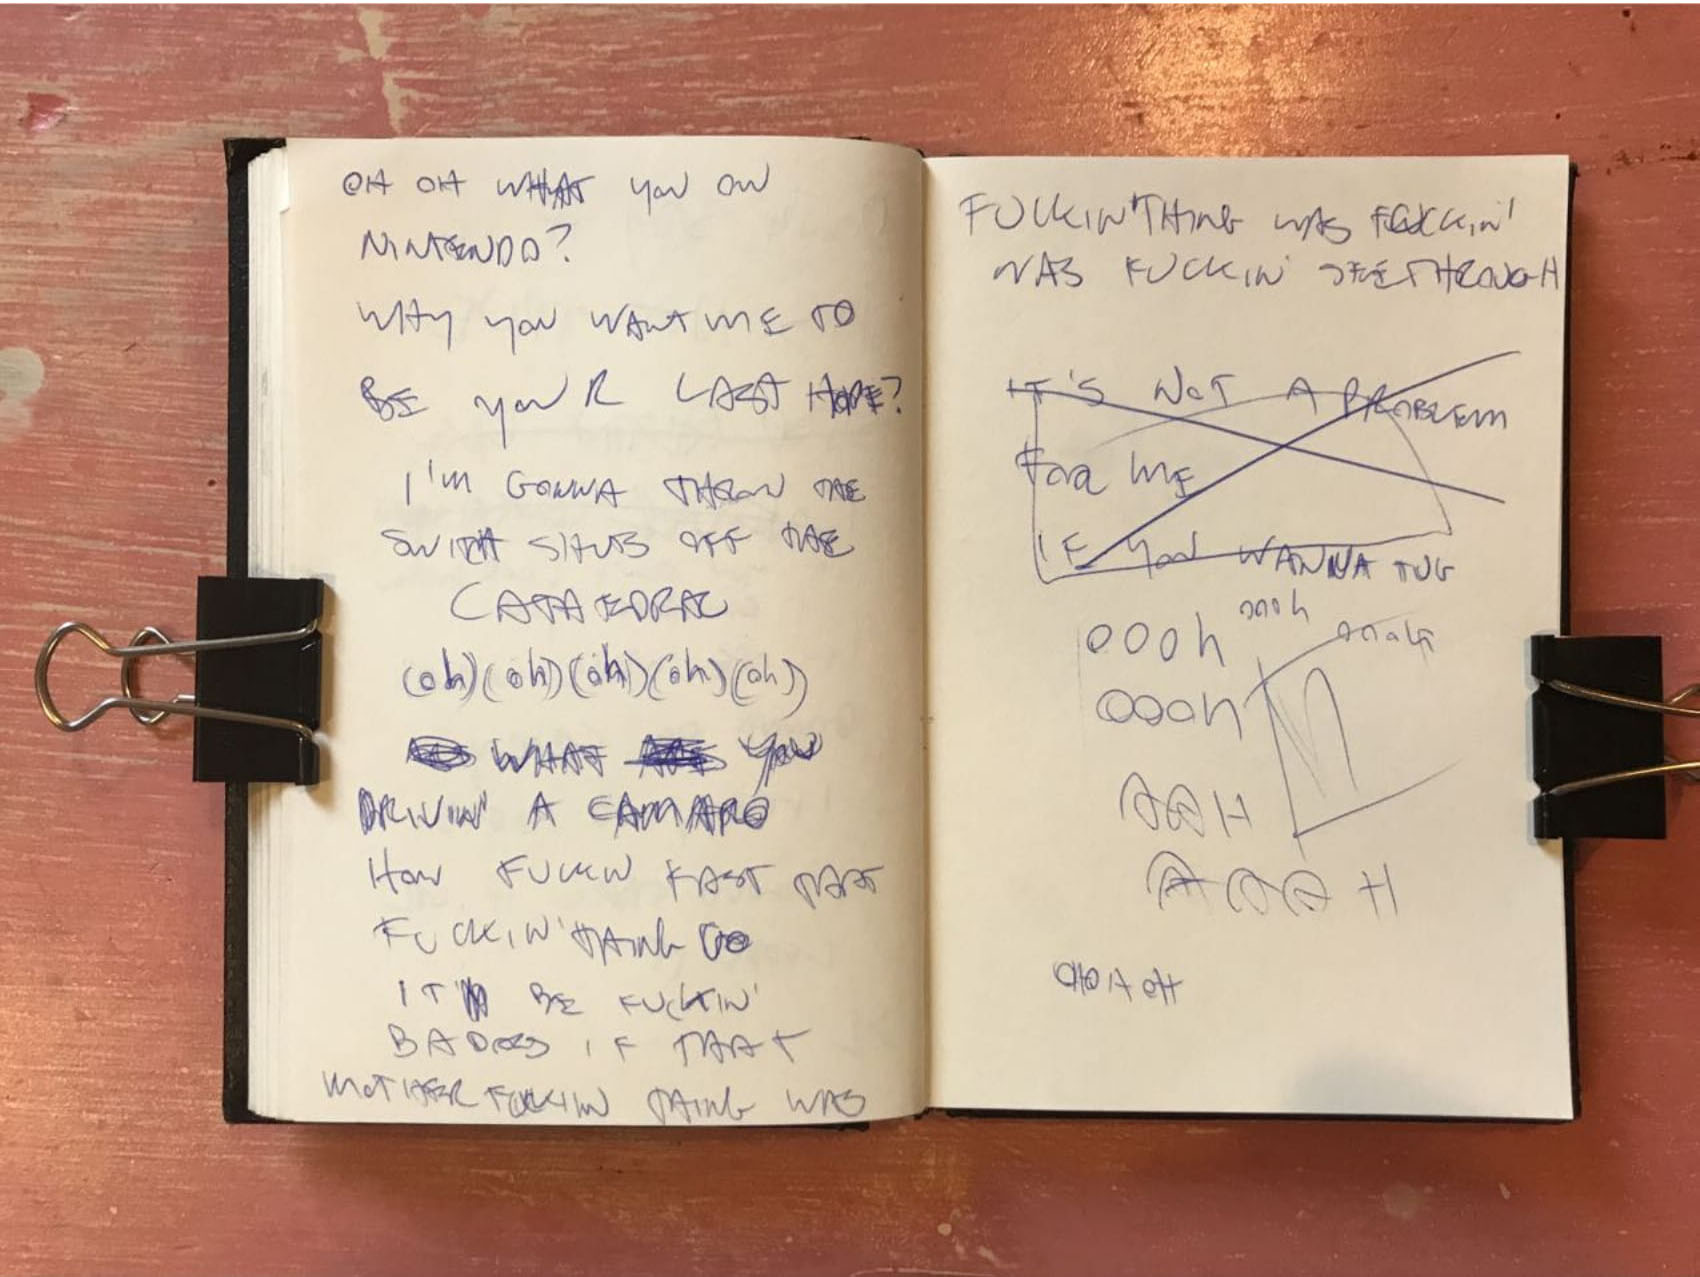 OH OH WHAT YOU ON
NINTENDO?
WHY YOU WANT ME TO
BE YOUR LAST HOPE?
I'M GONNA THROW THE
SWITH SHUTS OFF THE
CATHEDRAL
(oh) (oh) (oh) (oh) (oh)
WHAT YOU
DRIVIN' A CAMARO
HOW FUCKIN FAST THAT
FUCKIN' THING GO
IT'D BE FUCKIN'
BADASS IF THAT
MOTHERFUCKIN THING WAS
FUCKIN' THING WAS FUCKIN'
WAS FUCKIN' SEETHROUGH
IT'S NOT A PROBLEM
FOR ME
IF YOU WANNA TUG
oooh oooh oooh
oooh
AAH
AAAH